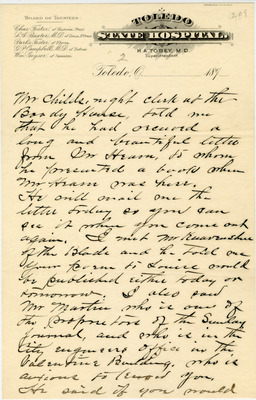 BOARD OF TRUSTEES
TOLEDO
STATE HOSPITAL.
H.A. TOBEY, M.D.
Superintendent.
2
Toledo, O. 189
Mr Childs, night clerk at the
Boody House, told me
that he had received a
long and beautiful letter
from Dr. Hearn, to whom
he presented a book when
Mr Hearn was here.
He will mail me the
letter today so you can
see it when you come out
again. I met Mr
of the Blade and he told me
your Poem to Louise would
be published either today or
tomorrow. I also saw
Mr Martin who is one of
the proprietors of the Sunday
Journal, and who is in the
City engineers office in the
Valentine Building, who is
anxious to you.
He said if you would